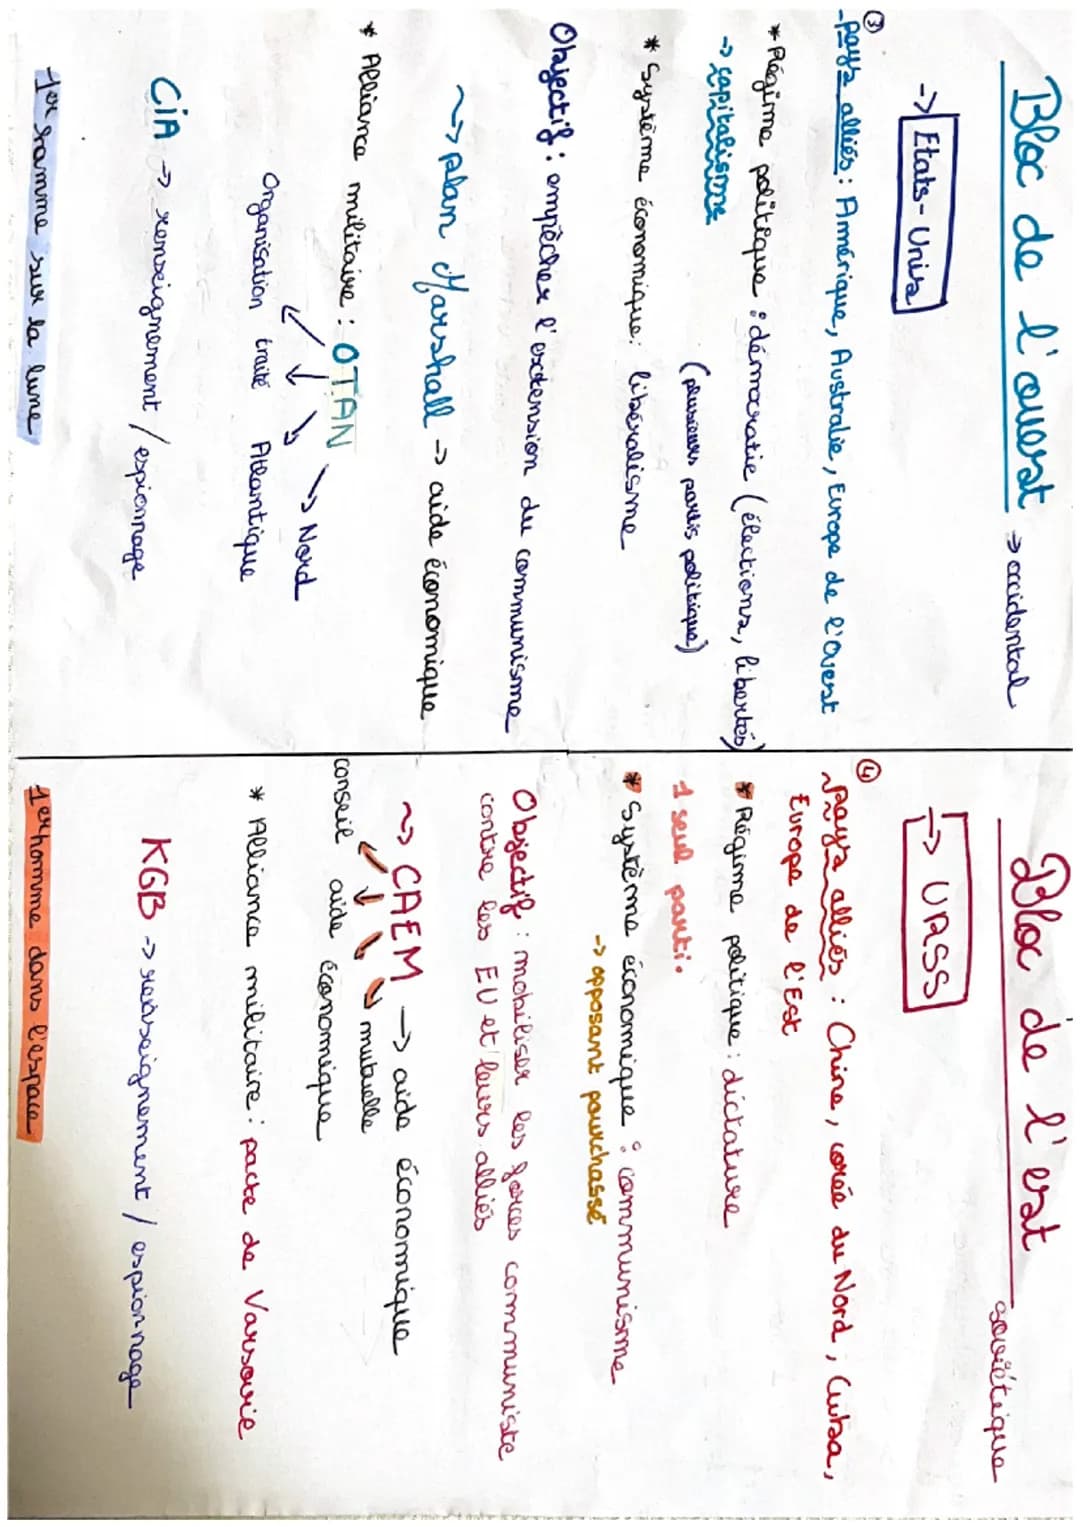 Bloc de l'ouest -> occidental
-> Etats-Unis
③
-pays alliés : Amérique, Australie, Europe de l'Ouest
* Régime politique : démocratie (élections, libertés)
-> capitalisme (plusieurs partis politique)
* Système économique: libéralisme
Objectif : empêcher l'extension du communisme
~> plan Marshall -> aide économique
* Alliance militaire : OTAN
-> Nord
Organisation traité Atlantique
CiA -> renseignement / espionnage
-1er homme sur la lune
Bloc de l'est soviétique
-> URSS
④
-pays alliés : Chine, corée du Nord, Cuba,
Europe de l'Est
* Régime politique : dictature
1 seul parti.
* Système économique : communisme
-> opposant pourchassé
Objectif : mobiliser les forces communiste
contre les EU et leurs alliés
~> CAEM -> aide économique
mutuelle
conseil aide économique
* Alliance militaire : pacte de Varsovie
KGB -> renseignement / espionnage
-1er homme dans l'espace